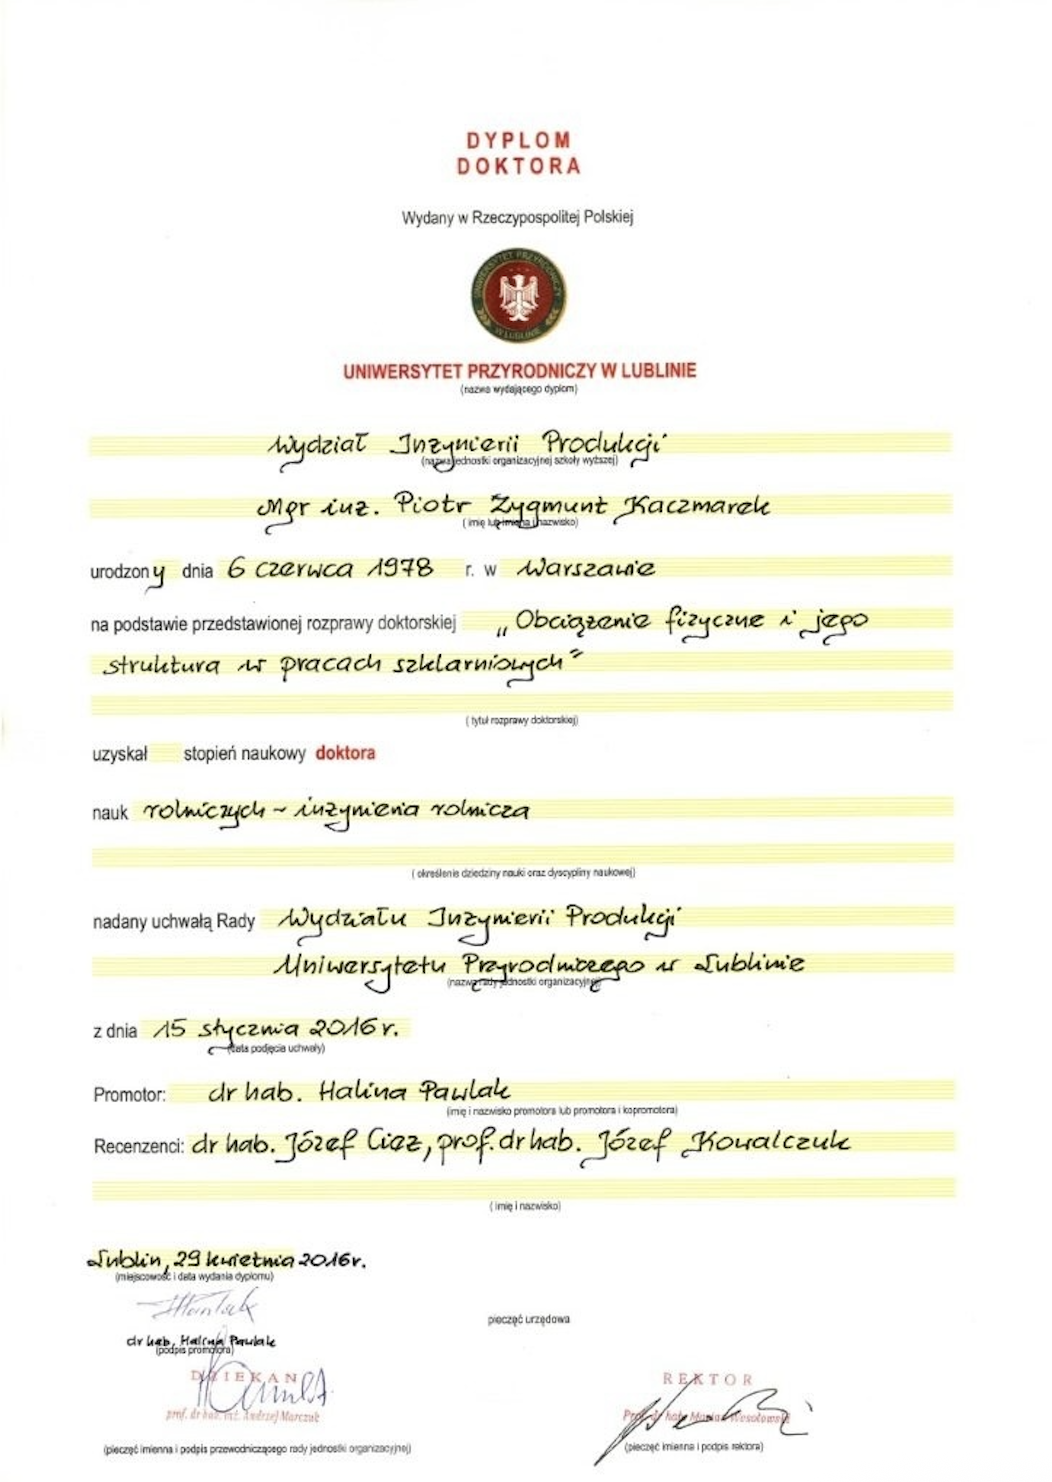 DYPLOM
DOKTORA
Wydany w Rzeczypospolitej Polskiej
UNIWERSYTET PRZYRODNICZY
W LUBLINIE
UNIWERSYTET PRZYRODNICZY W LUBLINIE
(nazwa wydającego dyplom)
Wydział Inżynierii Produkcji
(nazwa jednostki organizacyjnej szkoły wyższej)
Mgr inż. Piotr Zygmunt Kaczmarek
( imię lub imiona i nazwisko)
urodzony dnia 6 czerwca 1978 r. w Warszawie
na podstawie przedstawionej rozprawy doktorskiej „Obciążenie fizyczne i jego
struktura w pracach szklarniowych”
( tytuł rozprawy doktorskiej)
uzyskał stopień naukowy doktora
nauk rolniczych - inżynieria rolnicza
( określenie dziedziny nauki oraz dyscypliny naukowej)
nadany uchwałą Rady Wydziału Inżynierii Produkcji
Uniwersytetu Przyrodniczego w Lublinie
(nazwa rady jednostki organizacyjnej)
z dnia 15 stycznia 2016 r.
(data podjęcia uchwały)
Promotor: dr hab. Halina Pawlak
(imię i nazwisko promotora lub promotora i kopromotora)
Recenzenci: dr hab. Józef Cież, prof. dr hab. Józef Kowalczuk
( imię i nazwisko)
Lublin, 29 kwietnia 2016 r.
(miejscowość i data wydania dyplomu)
pieczęć urzędowa
dr hab. Halina Pawlak
(podpis promotora)
DZIEKAN
prof. dr hab. inż. Andrzej Marczuk
(pieczęć imienna i podpis przewodniczącego rady jednostki organizacyjnej)
REKTOR
Prof. dr hab. Marian Wesołowski
(pieczęć imienna i podpis rektora)